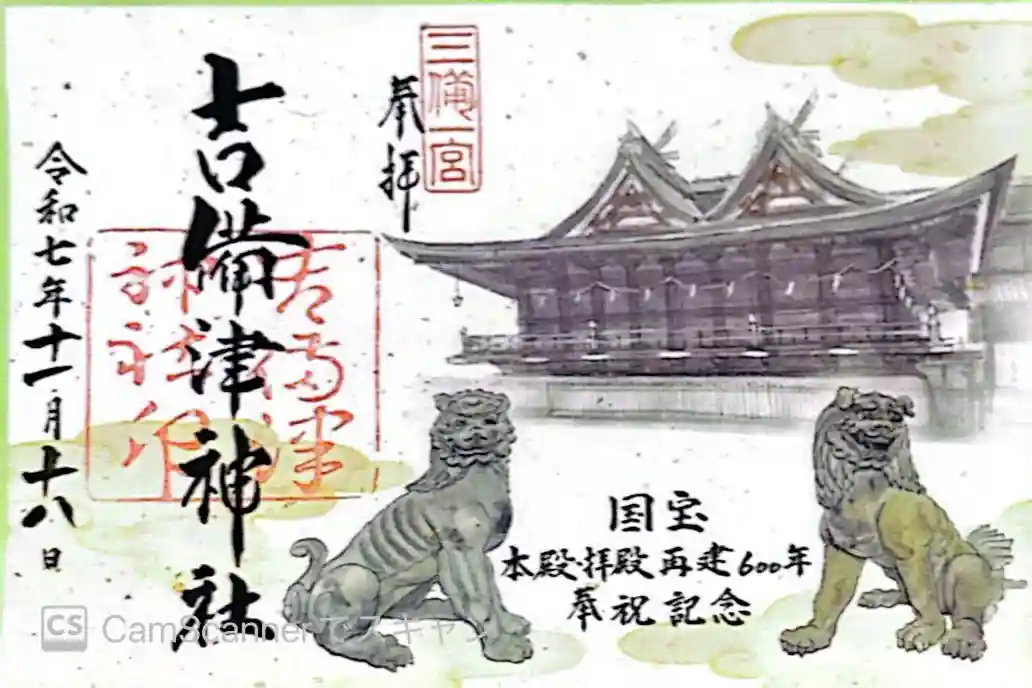 三備一宮
奉拝
吉備津神社
令和七年十一月十八日
国宝
本殿・拝殿再建600年
奉祝記念
CS CamScannerでスキャン